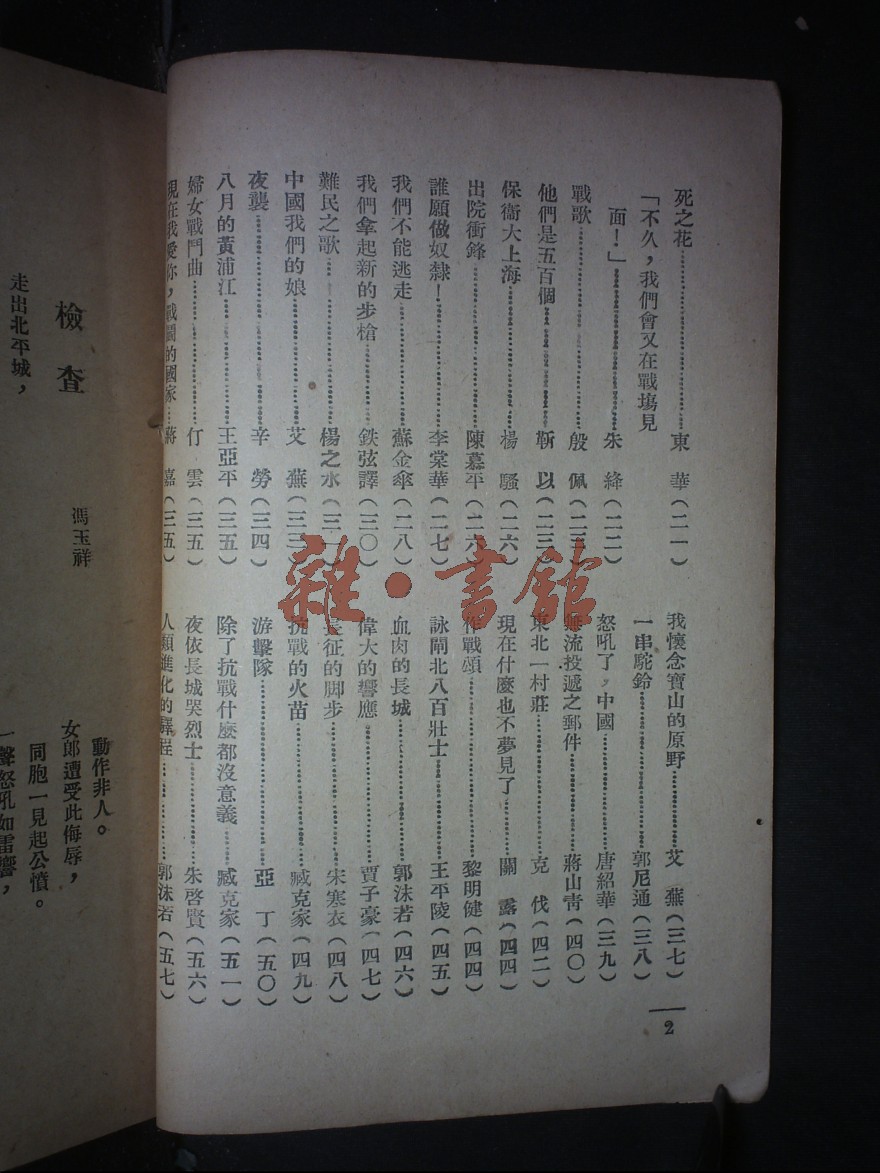 死之花 東華(二一)
「不久，我們會又在戰塲見
面！」 朱絳(二二)
戰歌 殷佩(二三)
他們是五百個 靳以(二三)
保衞大上海 楊騷(二六)
出院衝鋒 陳慕平(二六)
誰願做奴隸！ 李棠華(二七)
我們不能逃走 蘇金傘(二八)
我們拿起新的步槍 鉄弦譯(三〇)
難民之歌 楊之水(三一)
中國我們的娘 艾蕪(三三)
夜襲 辛勞(三四)
八月的黃浦江 王亞平(三五)
婦女戰鬥曲 仃雲(三五)
現在我愛你，戰鬪的國家 蔣嘉(三五)
我懷念寶山的原野 艾蕪(三七)
一串駝鈴 郭尼通(三八)
怒吼了，中國 唐紹華(三九)
流投遞之郵件 蔣山靑(四〇)
東北一村莊 克伐(四二)
現在什麽也不夢見了 關露(四四)
作戰頌 黎明健(四四)
詠閘北八百壯士 王平陵(四五)
血肉的長城 郭沫若(四六)
偉大的響應 賈子豪(四七)
長征的脚步 宋寒衣(四八)
抗戰的火苗 臧克家(四九)
游擊隊 亞丁(五〇)
除了抗戰什麽都沒意義 臧克家(五一)
夜依長城哭烈士 朱啓賢(五六)
人類進化的驛程 郭沫若(五七)
2
檢查
馮玉祥
走出北平城，
動作非人。
女郞遭受此侮辱，
同胞一見起公憤。
一聲怒吼如雷響，
雜·書館